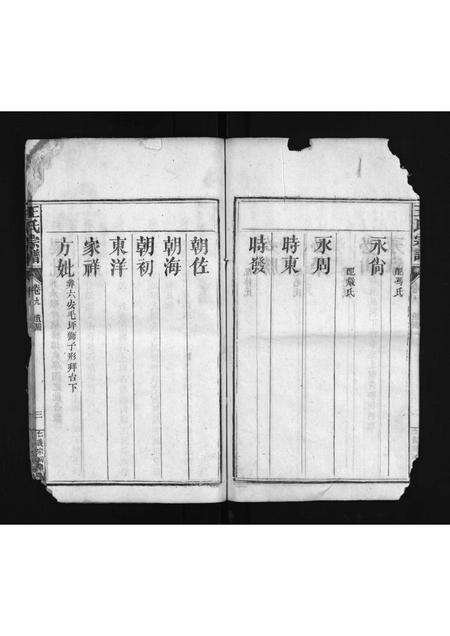 配馬氏
永尙
配嚴氏
永周
時東
時發
朝佐
朝海
朝初
東洋
家祥
方妣
葬六安毛坪獅子形拜台下
王氏宗譜
卷九
三